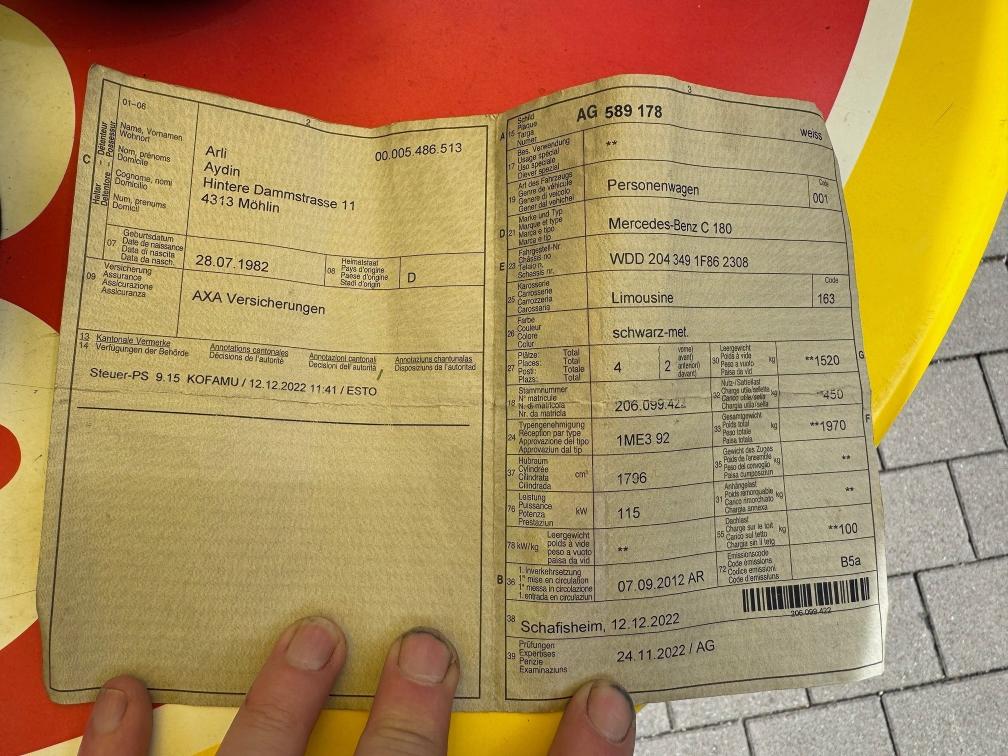 2
01–06
C
Halter Détenteur
Detentore Possessur
Name, Vornamen
Wohnort
Nom, prénoms
Domicile
Cognome, nomi
Domicilio
Num, prenums
Domicil
00.005.486.513
Arli
Aydin
Hintere Dammstrasse 11
4313 Möhlin
07
Geburtsdatum
Date de naissance
Data di nascita
Data da nasch.
28.07.1982
08
Heimatstaat
Pays d'origine
Paese d'origine
Stadi d'origin
D
09
Versicherung
Assurance
Assicurazione
Assicuranza
AXA Versicherungen
13 Kantonale Vermerke
14 Verfügungen der Behörde
Annotations cantonales
Décisions de l'autorité
Annotazioni cantonali
Decisioni dell'autorità
Annotaziuns chantunalas
Disposiziuns da l'autoritad
Steuer-PS 9.15 KOFAMU / 12.12.2022 11:41 / ESTO
3
A 15
Schild
Plaque
Targa
Numer
AG 589 178
weiss
17
Bes. Verwendung
Usage spécial
Uso speciale
Diever spezial
**
19
Art des Fahrzeugs
Genre de véhicule
Genere di veicolo
Gener dal vehichel
Personenwagen
Code
001
D 21
Marke und Typ
Marque et type
Marca e tipo
Marca e tip
Mercedes-Benz C 180
E 23
Fahrgestell-Nr
Châssis no
Telaio n.
Schassis nr.
WDD 204 349 1F86 2308
25
Karosserie
Carrosserie
Carrozzeria
Carossaria
Limousine
Code
163
26
Farbe
Couleur
Colore
Colur
schwarz-met.
27
Plätze: Total
Places: Total
Posti: Totale
Plazs: Total
4
2
vorne)
avant)
anteriori)
davant)
G
30
Leergewicht
Poids à vide
Peso a vuoto
Paisa da vid
kg
**1520
18
Stammnummer
N° matricule
N. di matricola
Nr. da matricla
206.099.422
32
Nutz-/Sattellast
Charge utile/sellette
Carico utile/sella
Chargia utila/sella
kg
**450
24
Typengenehmigung
Réception par type
Approvazione del tipo
Approvaziun dal tip
1ME3 92
F
33
Gesamtgewicht
Poids total
Peso totale
Paisa totala
kg
**1970
37
Hubraum
Cylindrée
Cilindrata
Cilindrada
cm³
1796
35
Gewicht des Zuges
Poids de l'ensemble
Peso del convoglio
Paisa cumposiziun
kg
**
76
Leistung
Puissance
Potenza
Prestaziun
kW
115
31
Anhängelast
Poids remorquable
Carico rimorchiato
Chargia annexa
kg
**
78 kW/kg
Leergewicht
poids à vide
peso a vuoto
paisa da vid
**
55
Dachlast
Charge sur le toit
Carico sul tetto
Chargia sin il tetg
kg
**100
B 36
1. Inverkehrsetzung
1re mise en circulation
1a messa in circolazione
1. entrada en circulaziun
07.09.2012 AR
72
Emissionscode
Code émissions
Codice emissioni
Code d'emissiuns
B5a
206.099.422
38
Schafisheim, 12.12.2022
39
Prüfungen
Expertises
Perizie
Examinaziuns
24.11.2022 / AG